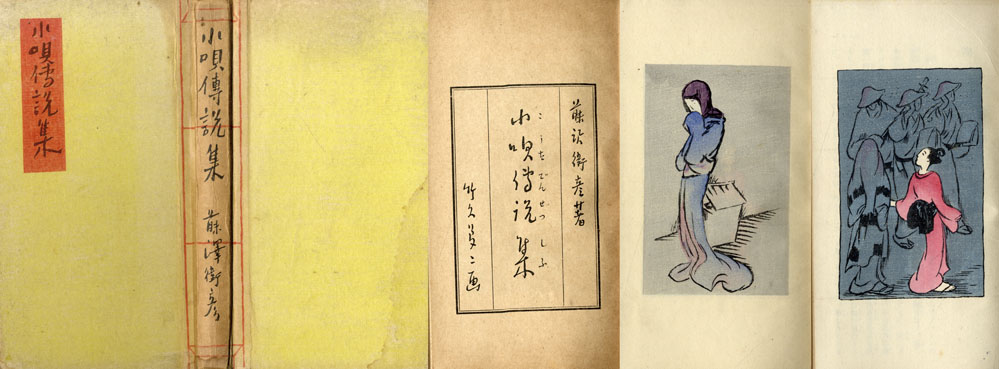 小唄傳説集
小唄傳説集 藤澤衛彦
藤沢衛彦著
小唄傳説集
こうたでんせつしふ
竹久夢二画